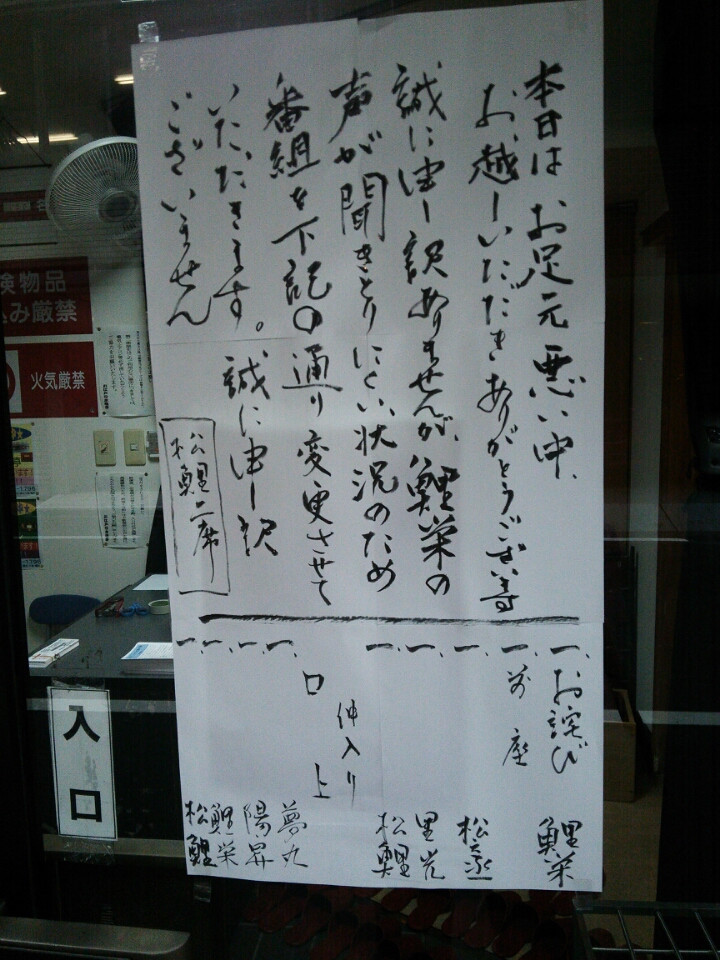 本日はお足元悪い中、
お越しいただきありがとうございます
誠に申し訳ありませんが、鯉栄の
声が聞きとりにくい状況のため
番組を下記の通り変更させて
いただきます。誠に申し訳
ございません
松鯉二席
一、お詫び 鯉栄
一、前座
一、松之丞
一、里光
一、松鯉
仲入り
口上
一、夢丸
一、陽昇
一、鯉栄
一、松鯉
険物品
込み厳禁
火気厳禁
入口